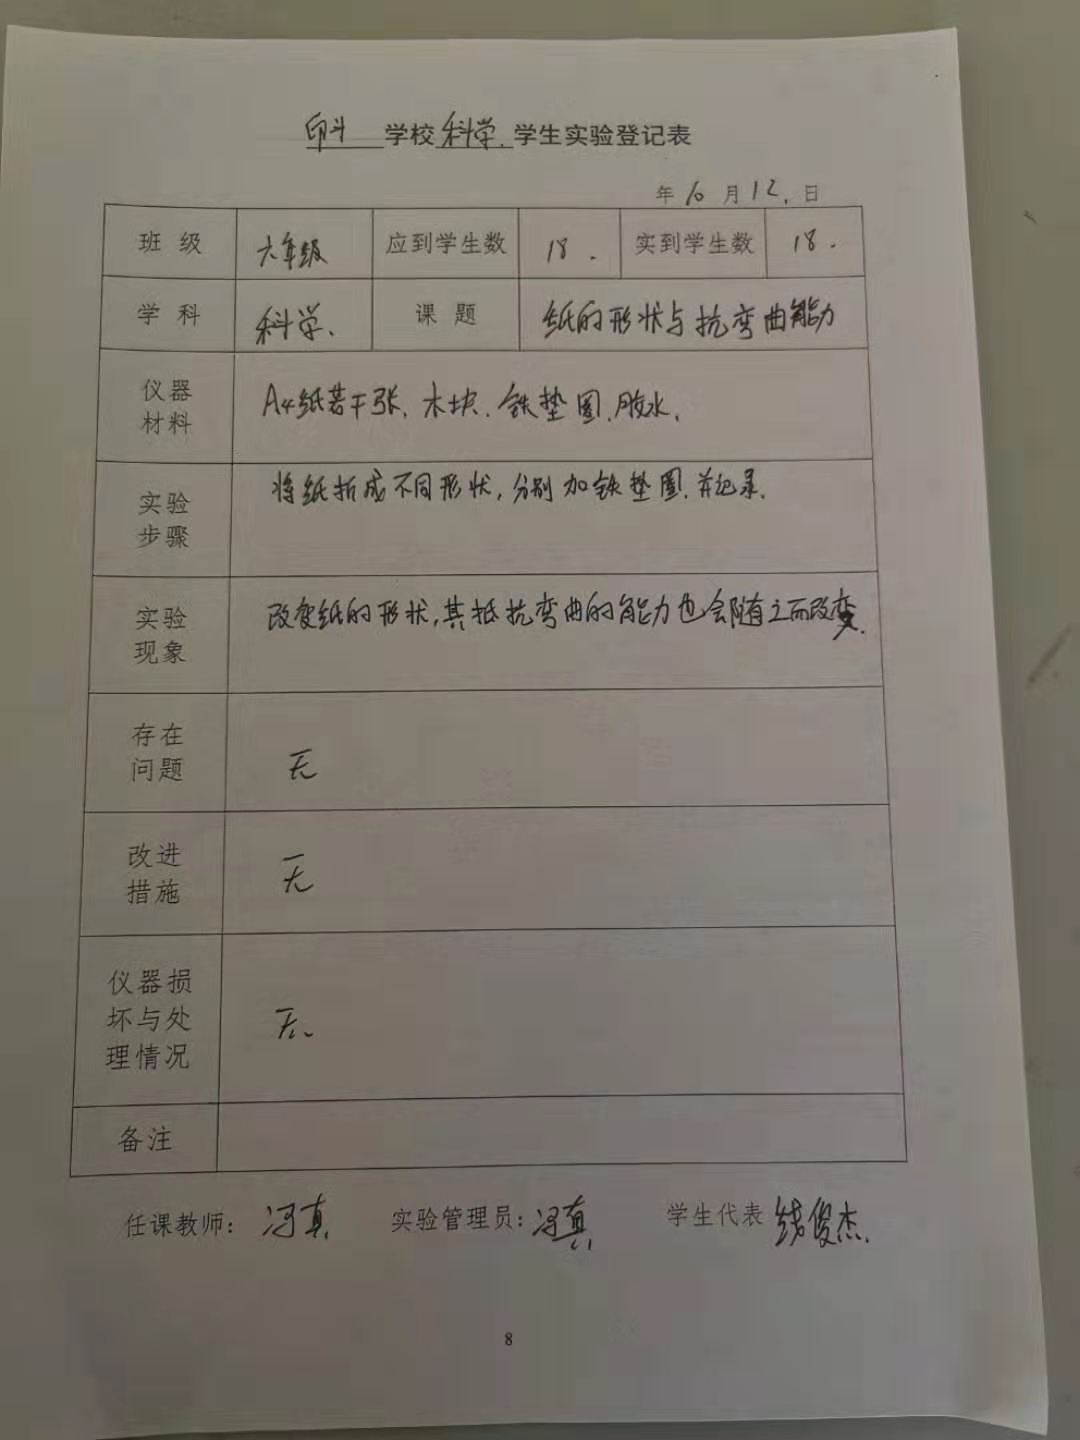 印斗学校科学.学生实验登记表
年10月12.日
班 级 六年级 应到学生数 18. 实到学生数 18.
学 科 科学. 课 题 纸的形状与抗弯曲能力
仪器
材料
A4纸若干张、木块、铁垫圈、胶水.
实验
步骤
将纸折成不同形状,分别加铁垫圈.并记录.
实验
现象
改变纸的形状,其抵抗弯曲的能力也会随之而改变.
存在
问题
无
改进
措施
无
仪器损
坏与处
理情况
无.
备注
任课教师: 冯真 实验管理员: 冯真 学生代表 钱俊杰.
8